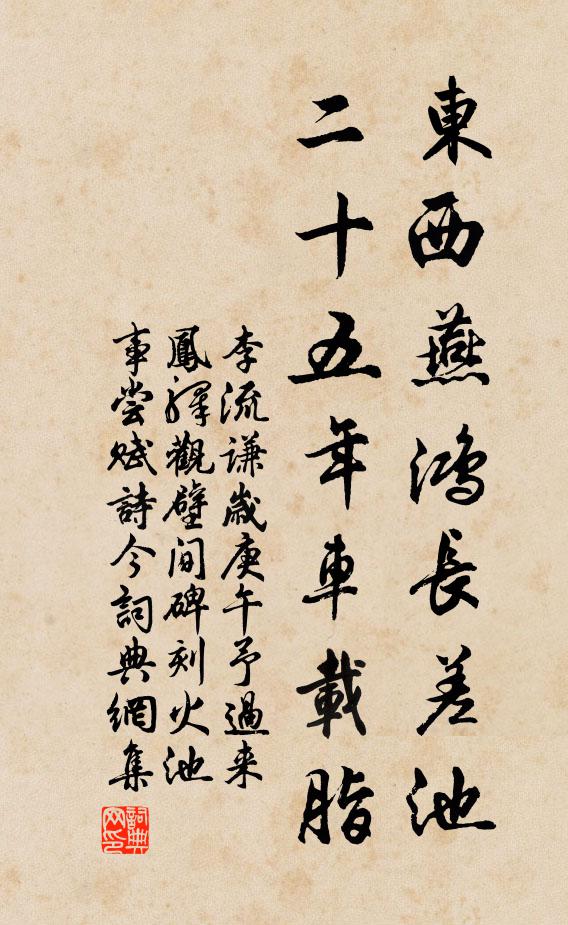 東西燕鴻長差池
二十五年車載脂
李流謙歲庚午予過来
鳳驛觀壁間碑刻火池
事嘗賦詩今詞典網集
詞典
网印